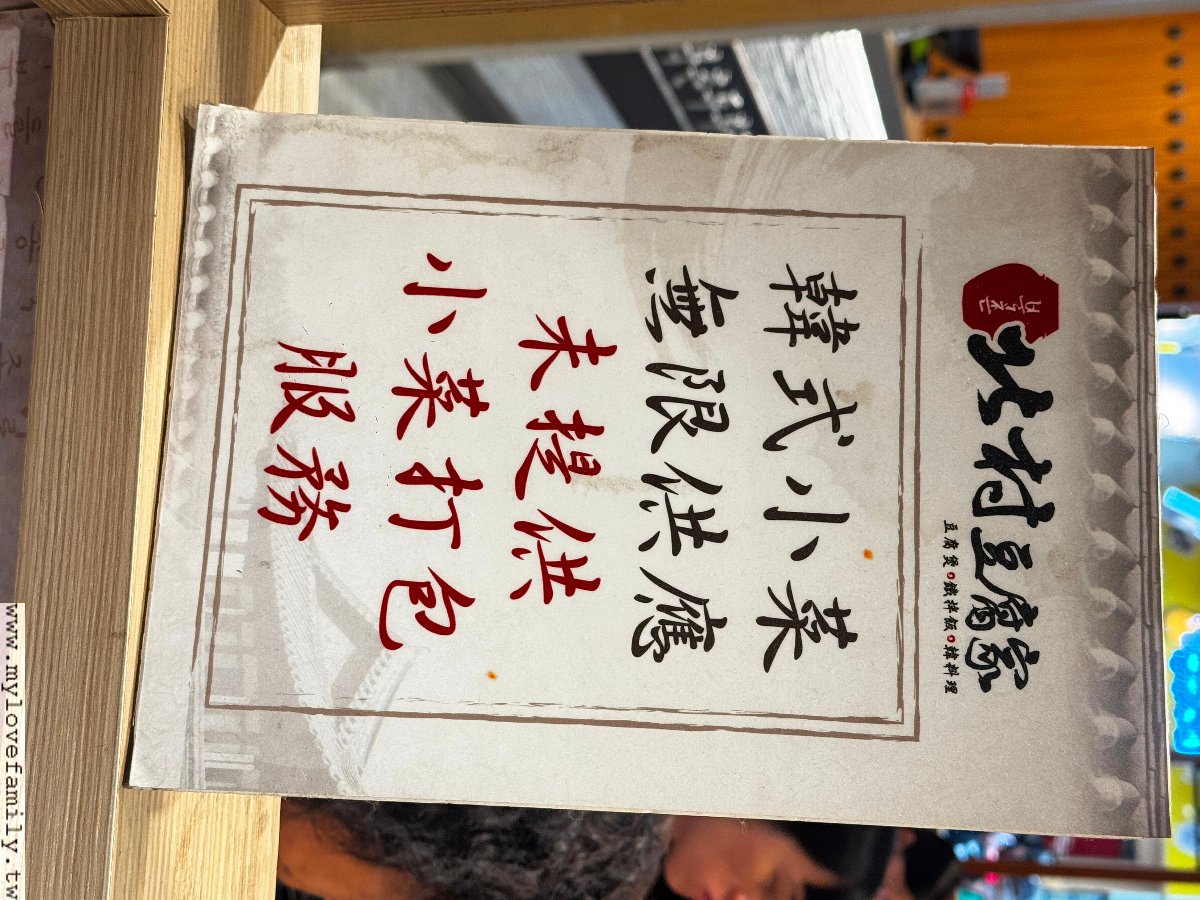 火村豆腐家
豆腐煲•鐵拌飯•韓料理
韓式小菜
無限供應
未提供
小菜打包
服務
www.mylovefamily.tw